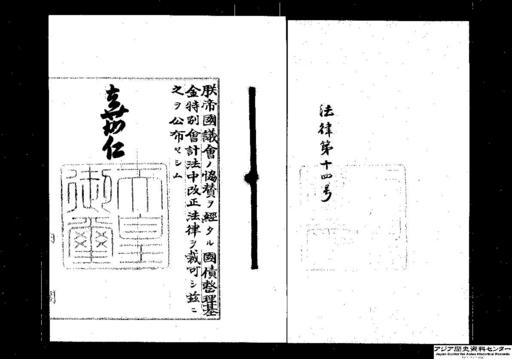 法律第十四号
朕帝國議會ノ協贊ヲ經タル國債整理基
金特別會計法中改正法律ヲ裁可シ玆ニ
之ヲ公布セシム
嘉仁
天皇
御璽
アジア歴史資料センター
Japan Center for Asian Historical Records